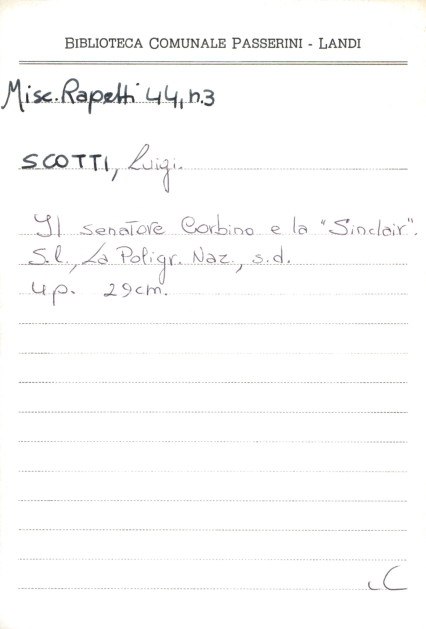 BIBLIOTECA COMUNALE PASSERINI - LANDI
Misc. Rapetti 44, n.3
SCOTTI, Luigi.
Il senatore Corbino e la "Sinclair".
S.l., La Poligr. Naz., s.d.
4 p. 29cm.